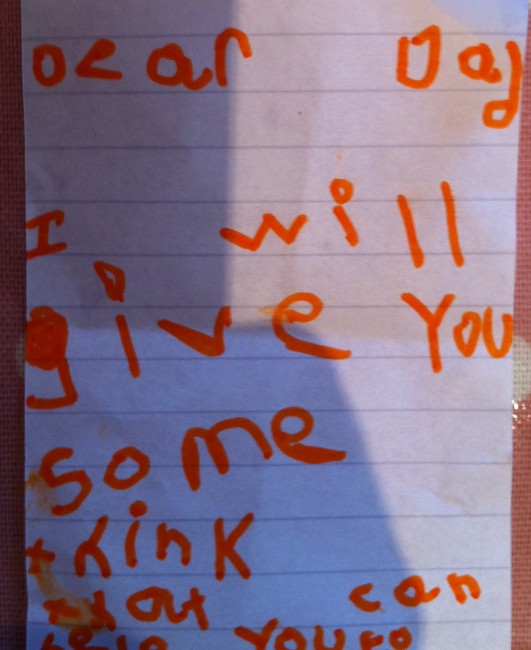 Dear Dad
I will
give You
some
thinK
that can
help You